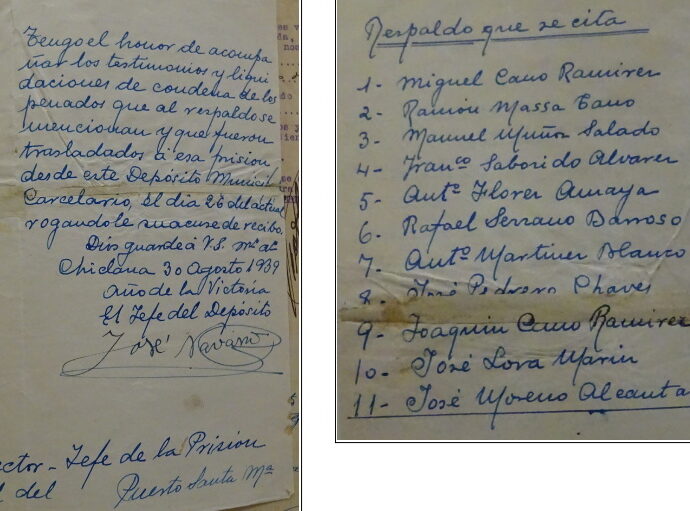 Tengo el honor de acompa
ñar los testimonios y liqui
daciones de condena de los
penados que al respaldo se
mencionan y que fueron
trasladados á esa prision
desde este Depósito Municil
Carcelario, el dia 26 del actual
rogandole su acuse de recibo.
Dios guarde á V.S. ms. as.
Chiclana 30 Agosto 1939
Año de la Victoria
El Jefe del Depósito
José Navarro
ector - Jefe de la Prision
l del Puerto Santa Mª
Respaldo que se cita
1- Miguel Cano Ramirez
2- Ramón Massa Cano
3- Manuel Muñoz Salado
4- Franco Saborido Alvarez
5- Antº Florez Amaya
6- Rafael Serrano Barroso
7- Antº Martinez Blanco
8- José Pedrero Chaves
9- Joaquin Cano Ramirez
10- José Lora Marin
11- José Moreno Alcanta